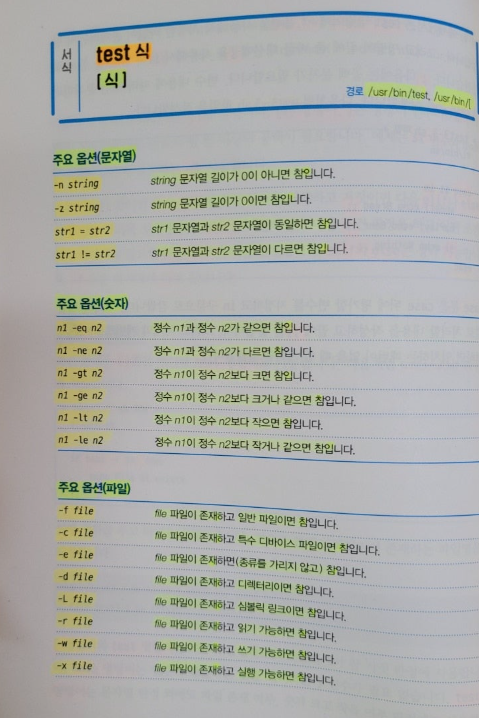 서식
test 식
[ 식 ]
경로 /usr/bin/test, /usr/bin/[
주요 옵션(문자열)
-n string string 문자열 길이가 0이 아니면 참입니다.
-z string string 문자열 길이가 0이면 참입니다.
str1 = str2 str1 문자열과 str2 문자열이 동일하면 참입니다.
str1 != str2 str1 문자열과 str2 문자열이 다르면 참입니다.
주요 옵션(숫자)
n1 -eq n2 정수 n1과 정수 n2가 같으면 참입니다.
n1 -ne n2 정수 n1과 정수 n2가 다르면 참입니다.
n1 -gt n2 정수 n1이 정수 n2보다 크면 참입니다.
n1 -ge n2 정수 n1이 정수 n2보다 크거나 같으면 참입니다.
n1 -lt n2 정수 n1이 정수 n2보다 작으면 참입니다.
n1 -le n2 정수 n1이 정수 n2보다 작거나 같으면 참입니다.
주요 옵션(파일)
-f file file 파일이 존재하고 일반 파일이면 참입니다.
-c file file 파일이 존재하고 특수 디바이스 파일이면 참입니다.
-e file file 파일이 존재하면(종류를 가리지 않고) 참입니다.
-d file file 파일이 존재하고 디렉터리이면 참입니다.
-L file file 파일이 존재하고 심볼릭 링크이면 참입니다.
-r file file 파일이 존재하고 읽기 가능하면 참입니다.
-w file file 파일이 존재하고 쓰기 가능하면 참입니다.
-x file file 파일이 존재하고 실행 가능하면 참입니다.